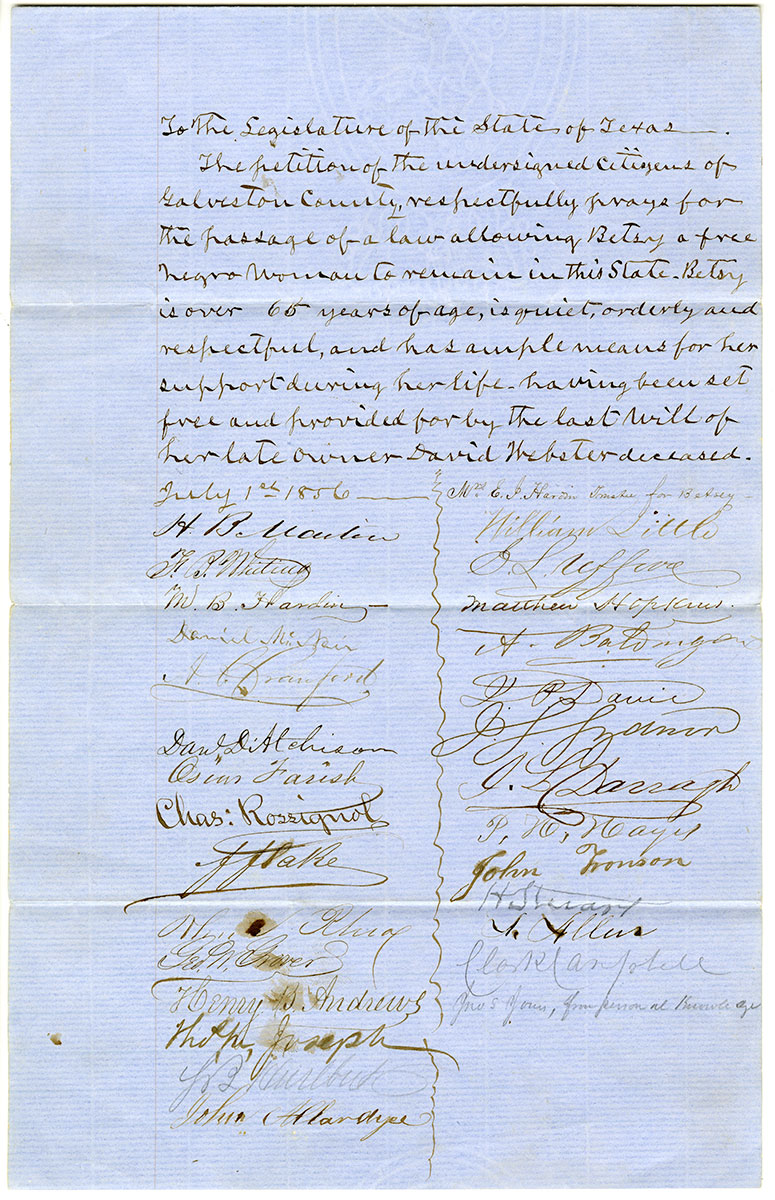 To the Legislature of the State of Texas.
The petition of the undersigned citizens of
Galveston County, respectfully prays for
the passage of a law allowing Betsy a free
negro woman to remain in this State. Betsy
is over 65 years of age, is quiet, orderly and
respectful, and has ample means for her
support during her life - having been set
free and provided for by the last Will of
her late owner David Webster deceased.
July 1st 1856
H. B. Martin
F. P. Whiting
M. B. Hardin
Daniel
Danl. D. Atchison
Oscar Farish
Chas: Rossignol
Geo. W. Grover
Henry B. Andrews
Thos. M. Joseph
John Allardyce
Mrs. E. J. Hardin Trustee for Betsey
William Little
Matthew Hopkins.
A.
Davie
J. S. Sydnor
J. L. Darragh
P. H. Hayes
John Ironson
H. Stuart
Allen
Clark Campbell
from personal knowledge